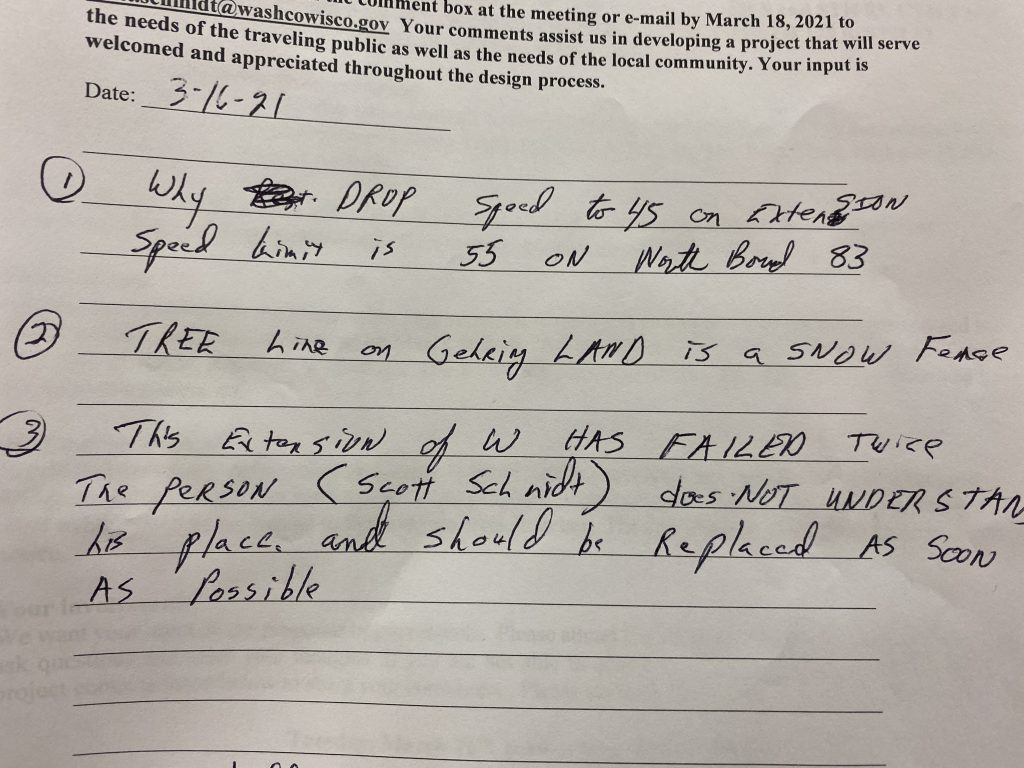 comment box at the meeting or e-mail by March 18, 2021 to
@washcowisco.gov Your comments assist us in developing a project that will serve
the needs of the traveling public as well as the needs of the local community. Your input is
welcomed and appreciated throughout the design process.
Date: 3-16-21
① Why DROP Speed to 45 on ExtenSION
Speed Limit is 55 ON North Bound 83
② TREE Line on Gehring LAND is a SNOW Fence
③ This Extension of W HAS FAILED Twice
The PERSON (Scott Schnidt) does NOT UNDERSTAN
his place. and should be Replaced AS SOON
AS Possible